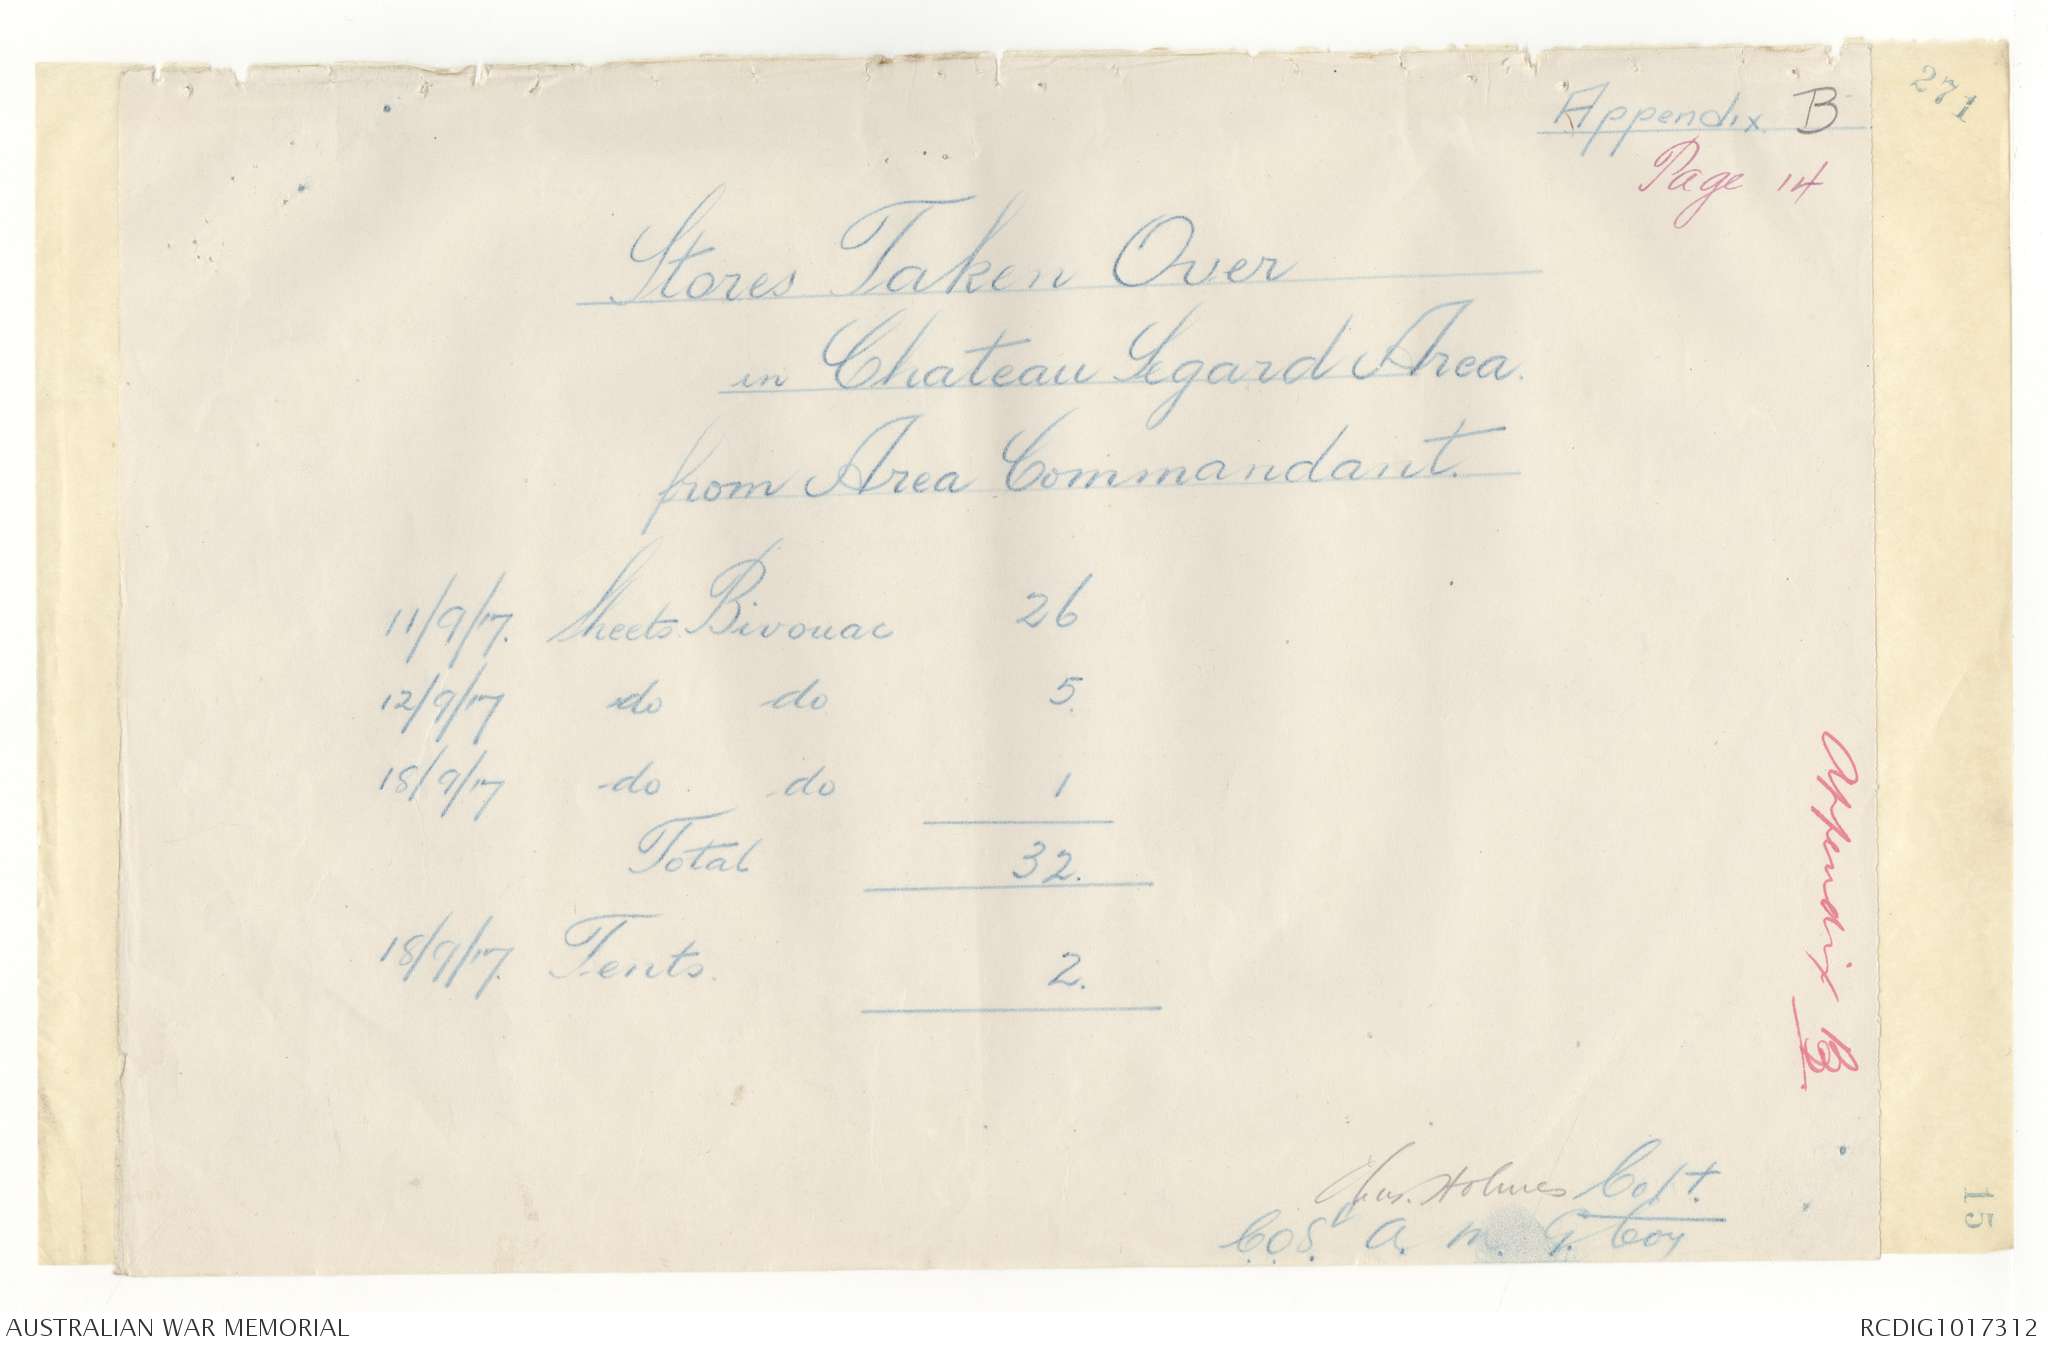 271
Appendix B
Page 14
Stores Taken Over
in Chateau Segard Area.
from Area Commandant.
11/9/17. Sheets Bivouac 26
12/9/17 do do 5.
18/9/17 do do 1
Total 32.
18/9/17. Tents. 2.
Appendix B.
Chas. Holmes Capt.
C.O. 8. A. M. G. Coy
15
AUSTRALIAN WAR MEMORIAL
RCDIG1017312